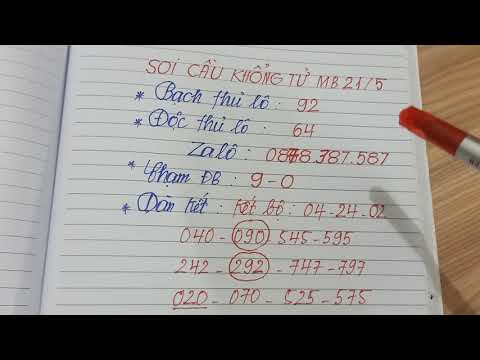 SOI CẦU KHỔNG TỬ MB 21/5
* Bạch thủ lô : 92
* Độc thủ lô : 64
Zalô : 0848.787.587
* Chạm ĐB : 9-0
* Dàn kết : Kết bộ : 04-24-02
040 - 090 - 545 - 595
242 - 292 - 747 - 797
020 - 070 - 525 - 575